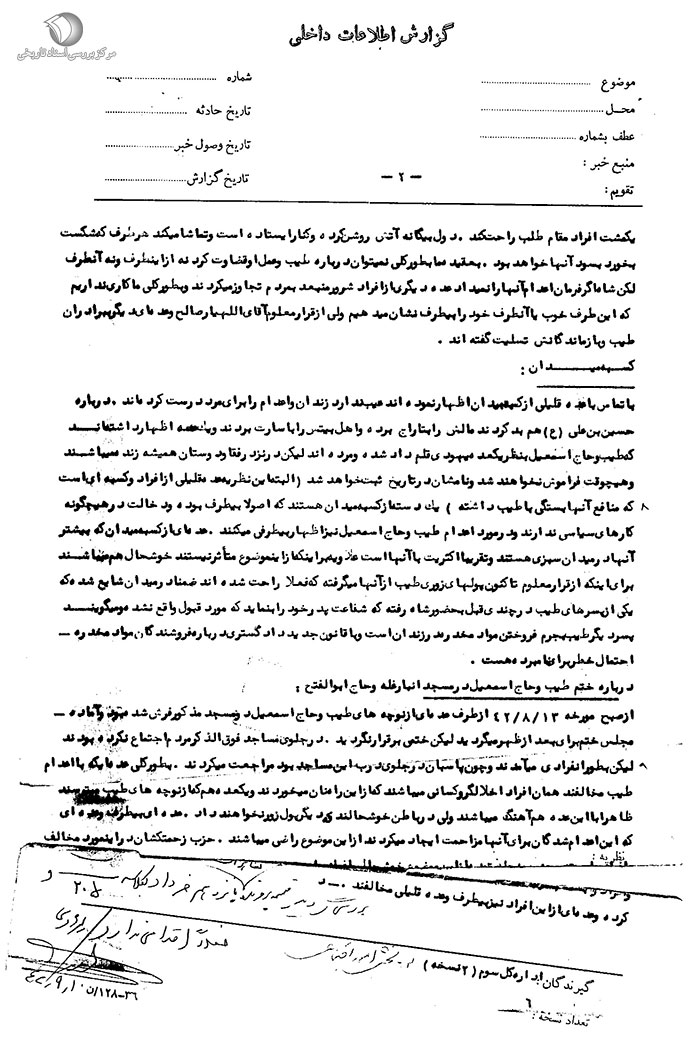 مرکز بررسی اسناد تاریخی
گزارش اطلاعات داخلی
موضوع
شماره
محـل
تاریخ حادثه
عطف بشماره
تاریخ وصول خبر
منبع خبر :
— ۲ —
تاریخ گزارش
تقویم :
یکمشت افراد مقام طلب راحت کند . دول بیگانه آتش روشن کرده و کنار ایستاده است و تماشا میکند هر طرف که شکست
بخورد بسود آنها خواهد بود . بعقیده ما بطور کلی نمیتوان درباره طیب و عمل او قضاوت کرد نه از اینطرف و نه آنطرف
لکن شاه اگر فرمان اعدام آنها را نمیداد عده دیگری از افراد شرور منبعد بمردم تجاوز میکردند و بطور کلی ما کاری نداریم
که این طرف خوب یا آنطرف خود را بیطرف نشان میدهیم ولی از قرار معلوم آقای اللهیار صالح و عده ای دیگر ببرادران
طیب و بازماندگانش تسلیت گفته اند .
کسبه میــدان :
با تماس با عده قلیلی از کسبه میدان اظهار نموده اند عیب ندارد زندان و اعدام را برای مرد درست کرده اند . درباره
حسین بن علی (ع) هم بد کردند مالش را بتاراج برده و اهل بیتش را باسارت بردند و یکعده اظهار داشته انـد
که طیب و حاج اسمعیل بنظر یکعده میهودی قلمداد شده و مرده اند لیکن در نزد رفقا و دوستان همیشه زنده میباشند
و هیچوقت فراموش نخواهند شد و نامشان در تاریخ ثبت خواهد شد ( البته این نظریه عده قلیلی از افراد و کسبه ای است
که منافع آنها بستگی با طیب داشته ) یک دسته از کسبه میدان هستند که اصولا بیطرف بوده و دخالت در هیچگونه
کارهای سیاسی ندارند و در مورد اعدام طیب و حاج اسمعیل نیز اظهار بیطرفی میکنند . عده ای از کسبه میدان که بیشتر
آنها در میدان سبزی هستند و تقریبا اکثریت با آنها است علاوه بر اینکه از این موضوع متأثر نیستند خوشحال هم میباشند
برای اینکه از قرار معلوم تاکنون پولهای زوری طیب از آنها میگرفته که فعلا راحت شده اند ضمنا در میدان شایع شده که
یکی از پسرهای طیب در چندی قبل بحضور شاه رفته که شفاعت پدر خود را بنماید که مورد قبول واقع نشده و میگوینــد
پسر دیگر طیب بجرم فروختن مواد مخدره در زندان است و با قانون جدید دادگستری درباره فروشندگان مواد مخدره —
احتمال خطر برای نامبرده هست .
درباره ختم طیب و حاج اسمعیل در مسجد انبار غله و حاج ابوالفتح :
از صبح مورخه ۴۲/۸/۱۳ از طرف عده ای از نوچه های طیب و حاج اسمعیل دو مسجد مذکور فرش شده بود و آماده —
مجلس ختم برای بعد از ظهر میگردید لیکن ختمی برقرار نگردید . در جلوی مساجد فوق الذکر مردم اجتماع نکرده بودند
لیکن بطور انفرادی میآمدند و چون پاسبان در جلوی درب این مساجد بود مراجعت میکردند . بطور کلی عده ایکه با اعدام
طیب مخالفند همان افراد اخلالگر و کسانی میباشند که از این راه نان میخوردند و یکعده هم که از نوچه های طیب میترسند
ظاهرا با این عده هم آهنگ میباشند ولی در باطن خوشحالند که دیگر پول زور نخواهند داد . عده ای بیطرف و عده ای
که این اعدام شدگان برای آنها مزاحمت ایجاد میکردند از این موضوع راضی میباشند . حزب زحمتکشان در اینمورد مخالف
نظریه :
کرده و عده ای از این افراد نیز بیطرف و عده قلیلی مخالفند .
گیرندگان اداره کل سوم ( ۲ نسخه )
تعداد نسخه : ۶